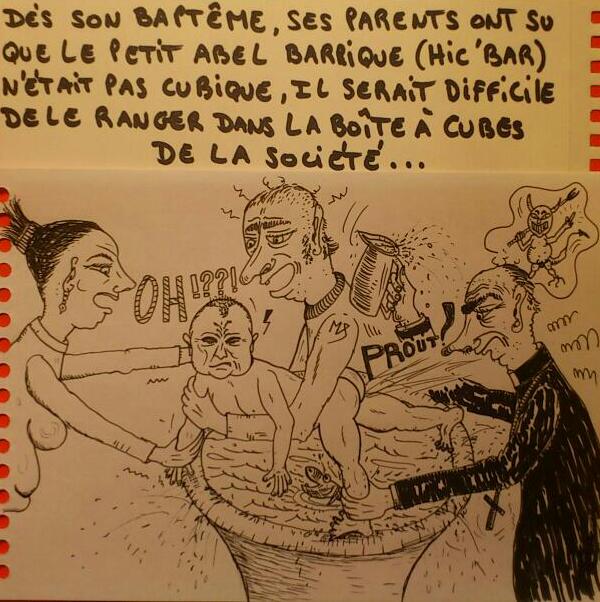 DÈS SON BAPTÊME, SES PARENTS ONT SU
QUE LE PETIT ABEL BARRIQUE (HIC'BAR)
N'ÉTAIT PAS CUBIQUE, IL SERAIT DIFFICILE
DE LE RANGER DANS LA BOÎTE À CUBES
DE LA SOCIÉTÉ...
OH!??!
PROUT!